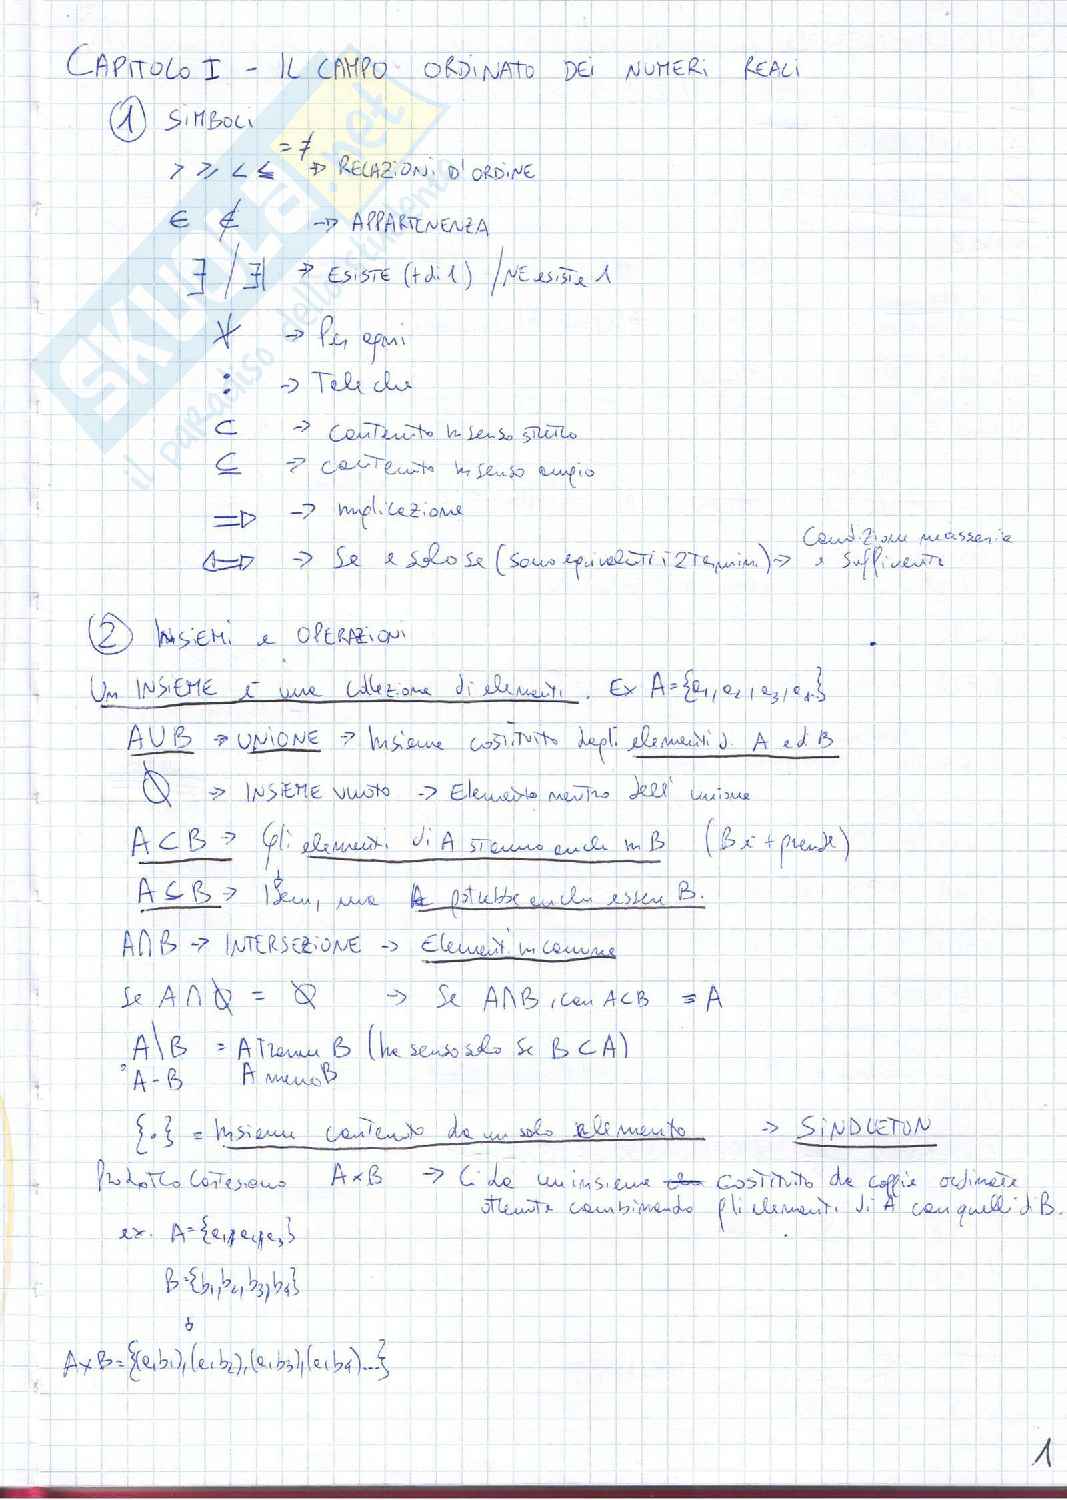 CAPITOLO I - IL CAMPO ORDINATO DEI NUMERI REALI
① SIMBOLI
= ≠
> ≥ < ≤ → RELAZIONI D'ORDINE
∈ ∉ → APPARTENENZA
∃ / ∃| → ESISTE (+ di 1) / NE esiste 1
∀ → Per ogni
: → Tale che
⊂ → Contenuto in senso stretto
⊆ → contenuto in senso ampio
⇒ → implicazione
⇔ → Se e solo se (sono equivalenti i 2 termini) → Condizione necessaria
e sufficiente
② INSIEMI e OPERAZIONI
Un INSIEME è una collezione di elementi. Ex A={a1, a2, a3, a4}
A∪B → UNIONE → Insieme costituito dagli elementi di A ed B
∅ → INSIEME VUOTO → Elemento neutro dell' unione
A⊂B → Gli elementi di A stanno anche in B (B è + grande)
A⊆B → Idem, ma A potrebbe anche essere B.
A∩B → INTERSEZIONE → Elementi in comune
Se A∩∅ = ∅ → Se A∩B, con A⊂B = A
A\B = A tranne B (ha senso solo se B⊂A)
A-B A meno B
{·} = Insieme contenuto da un solo elemento → SINDLETON
Prodotto Cartesiano A×B → Ci da un insieme costituito da coppie ordinate
ottenute combinando gli elementi di A con quelli di B.
ex. A={a1, a2, a3}
B={b1, b2, b3, b4}
A×B={(a,b1),(a,b2),(a,b3),(a,b4)...}
1
SKUOLA.net
il paradiso dello studente